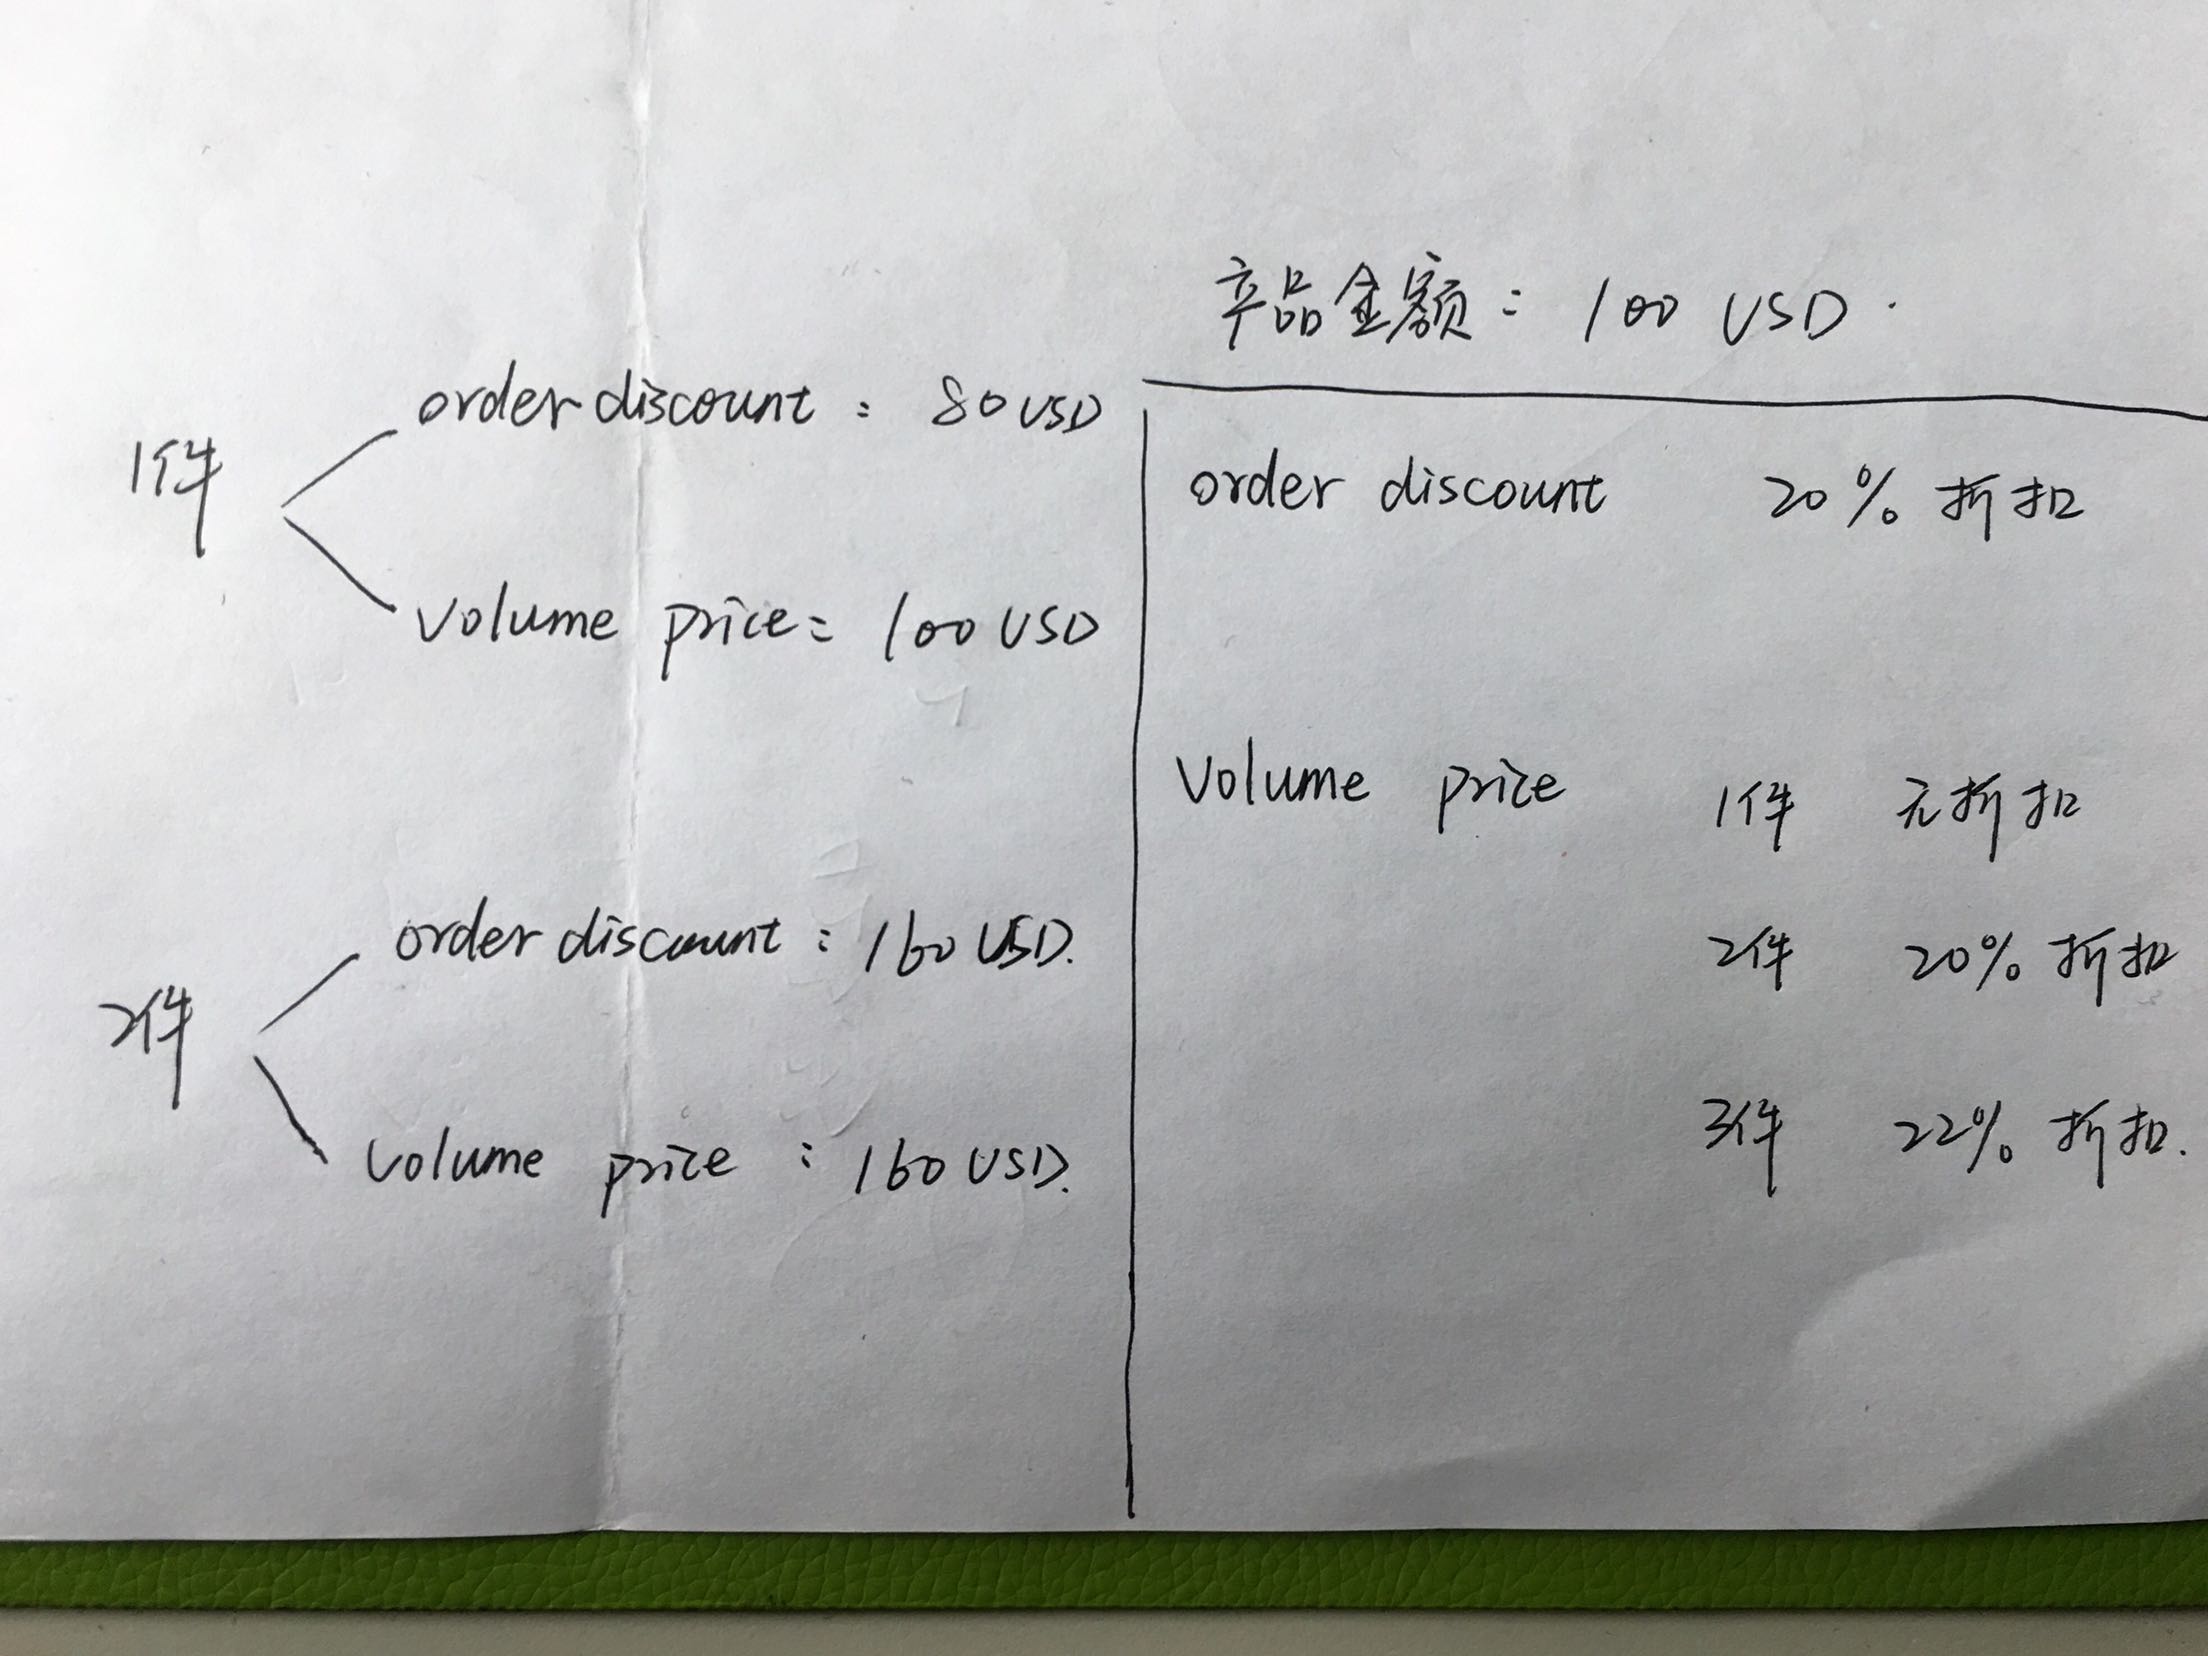 产品金额: 100 USD.
1件
order discount : 80 USD
volume price: 100 USD
2件
order discount : 160 USD.
volume price : 160 USD.
order discount 20% 折扣
volume price 1件 无折扣
2件 20% 折扣
3件 22% 折扣.